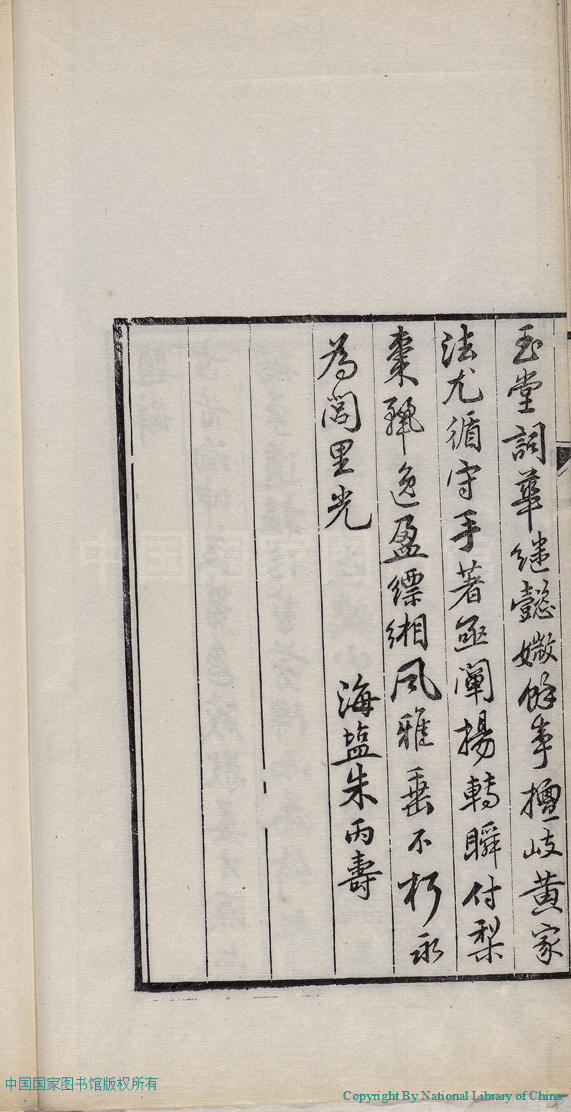 玉堂詞華继懿媺餘事擅岐黃家
法尤循守手著亟闡揚轉瞬付梨
棗駢逸盈缥緗風雅垂不朽永
為閭里光
海塩朱丙壽
中国国家图书馆版权所有
Copyright By National Library of China